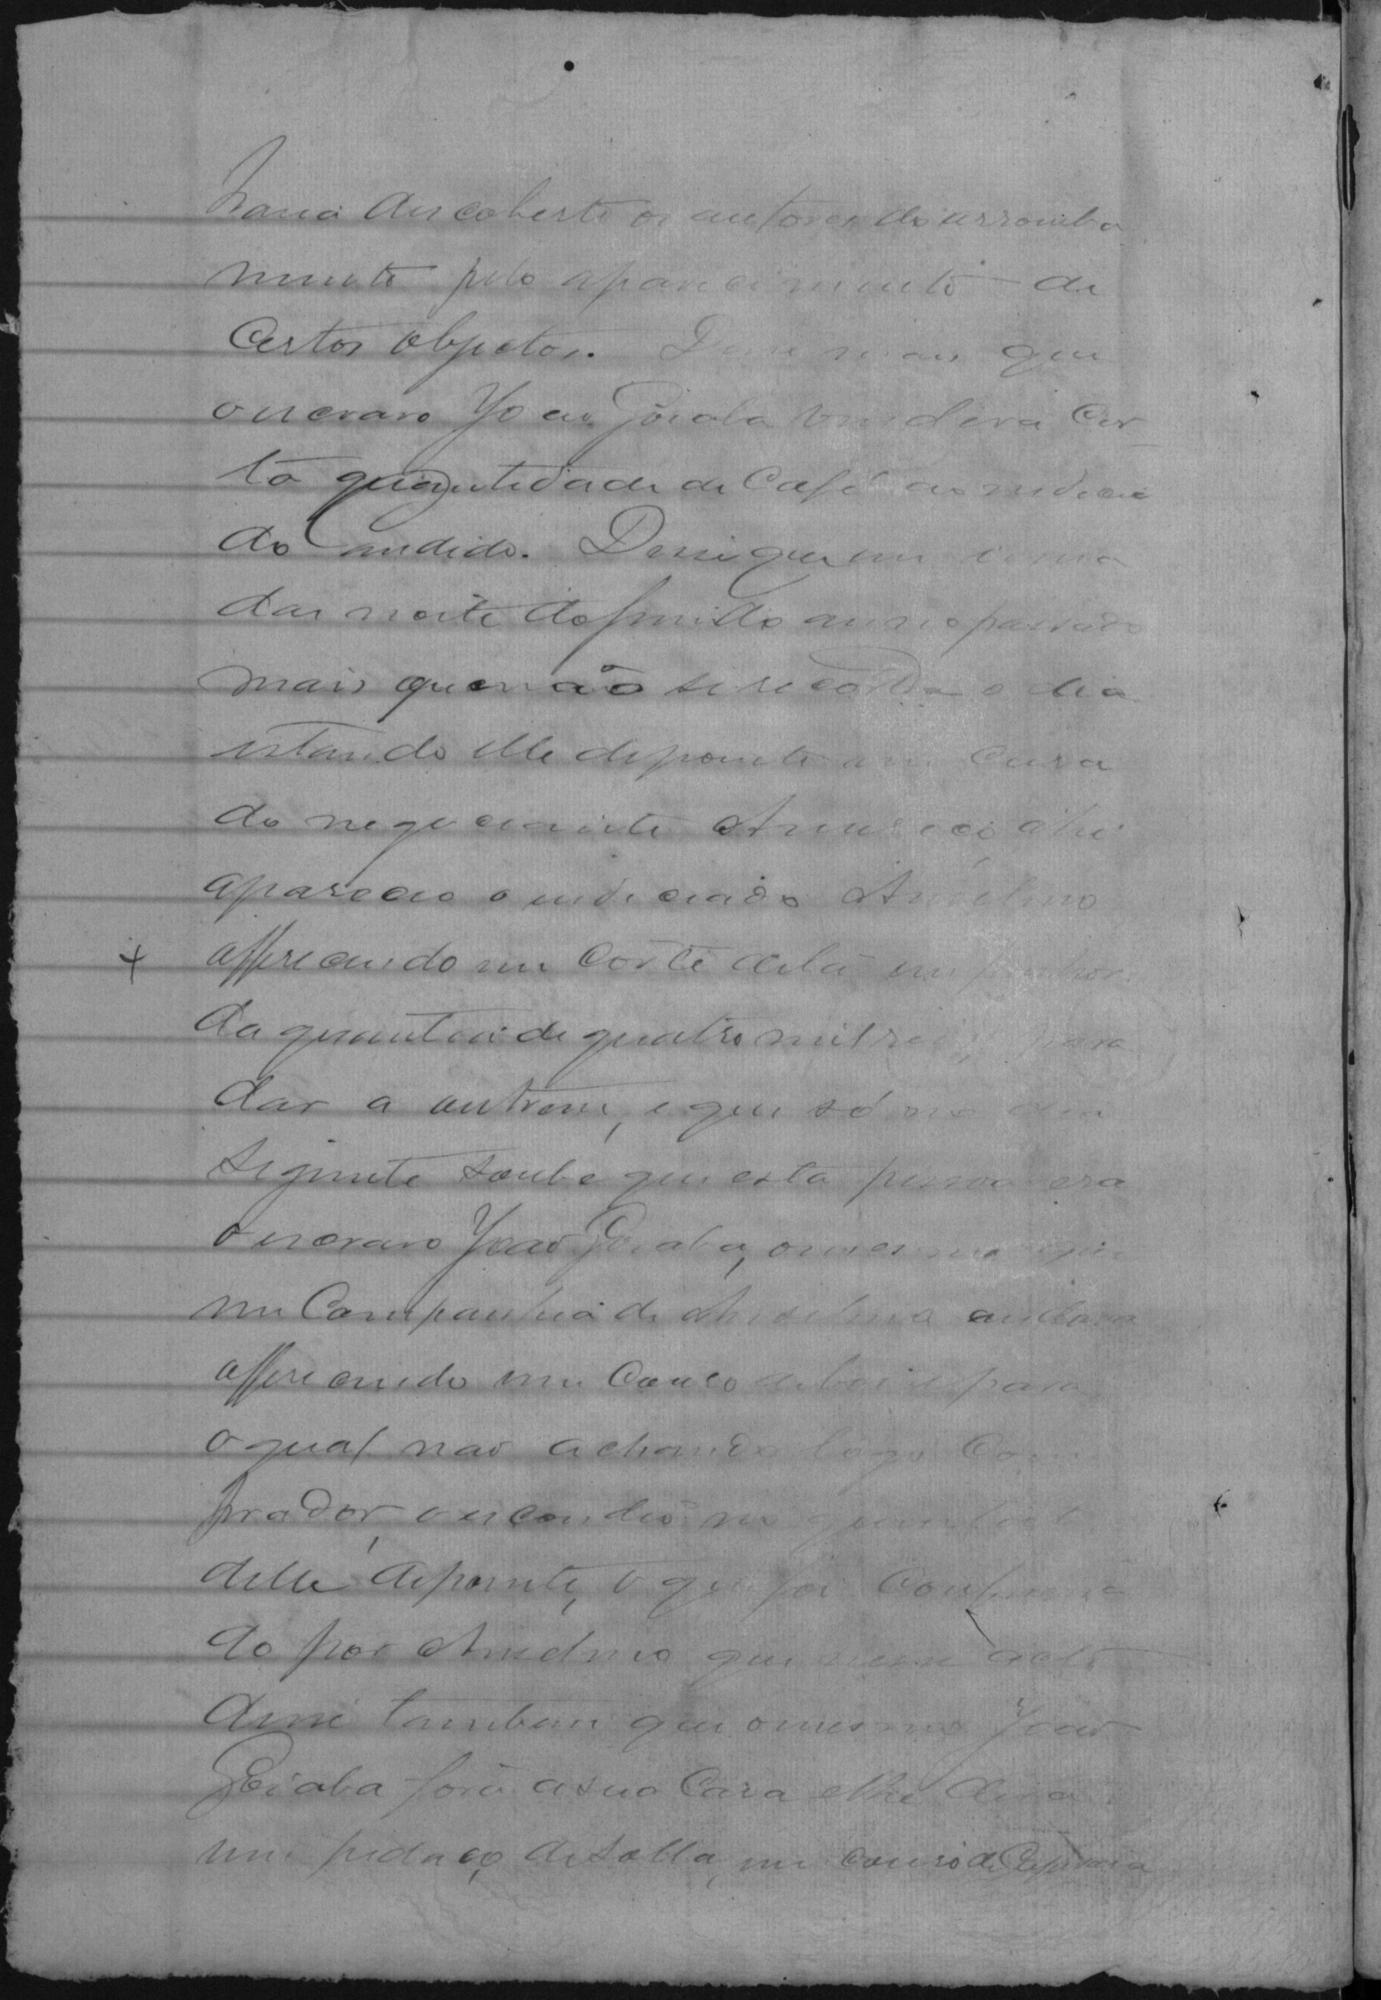 havia descoberto os autores do arromba
mento pelo aparecimento de
certos objetos. Disse mais que
o escravo João Goiaba vendera cer-
ta quantidade de Café ao indicia
do Candido. Disse que em uma
das noite do findo anno passado
mais que não se recorda o dia
estando elle depoente em casa
do negociante Amancio ahi
apareceo o indiciado Anselmo
offerecendo um corte de lã em penhor
da quantia de quatro mil reis, para
dar a outrem, e que só no dia
siguinte soube que esta pessoa era
o escravo João Goiaba, o mesmo que
em Companhia de Anselmo andava
offerecendo um Couro de boi e para
o qual nao achando logo Com
prador, o escondeo no quintal
delle depoente, o que foi Confirma
do por Anselmo que neste acto
disse tambem que o mesmo João
Goiaba fora a sua Casa e lhe dera
um pedaço de solla, um couro de